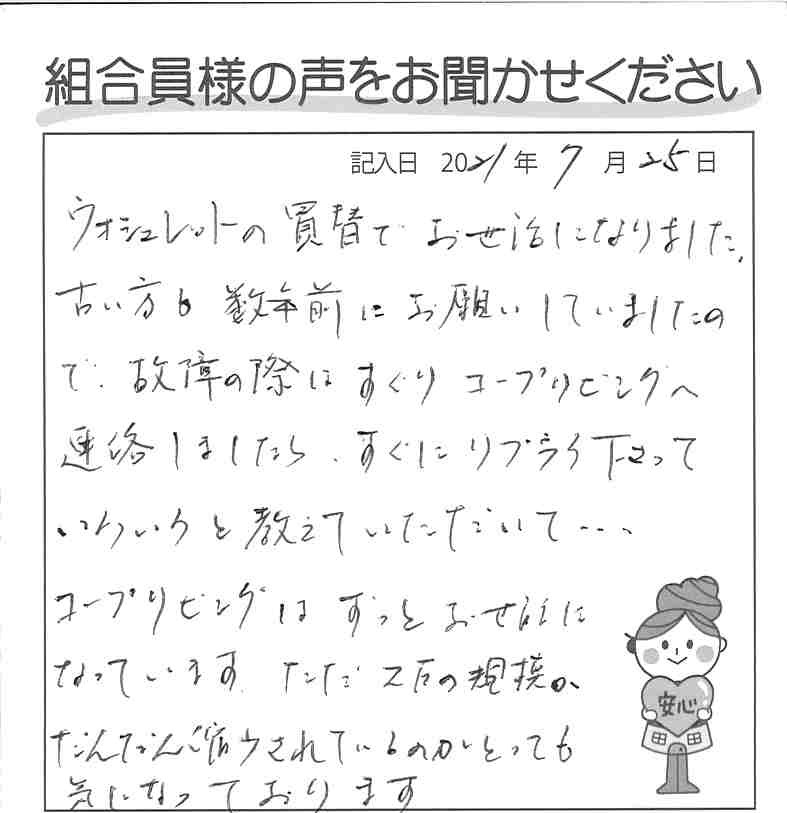 組合員様の声をお聞かせください
記入日 2021年7月25日
ウォシュレットの買替でお世話になりました。
古い方も数年前にお願いしていましたの
で、故障の際はすぐ コープリビングへ
連絡しましたら、すぐにリプライ下さって
いろいろと教えていただいて…、
コープリビングはずっとお世話に
なっています。ただ の規模が、
だんだん されているのがとっても
気になっております
安心